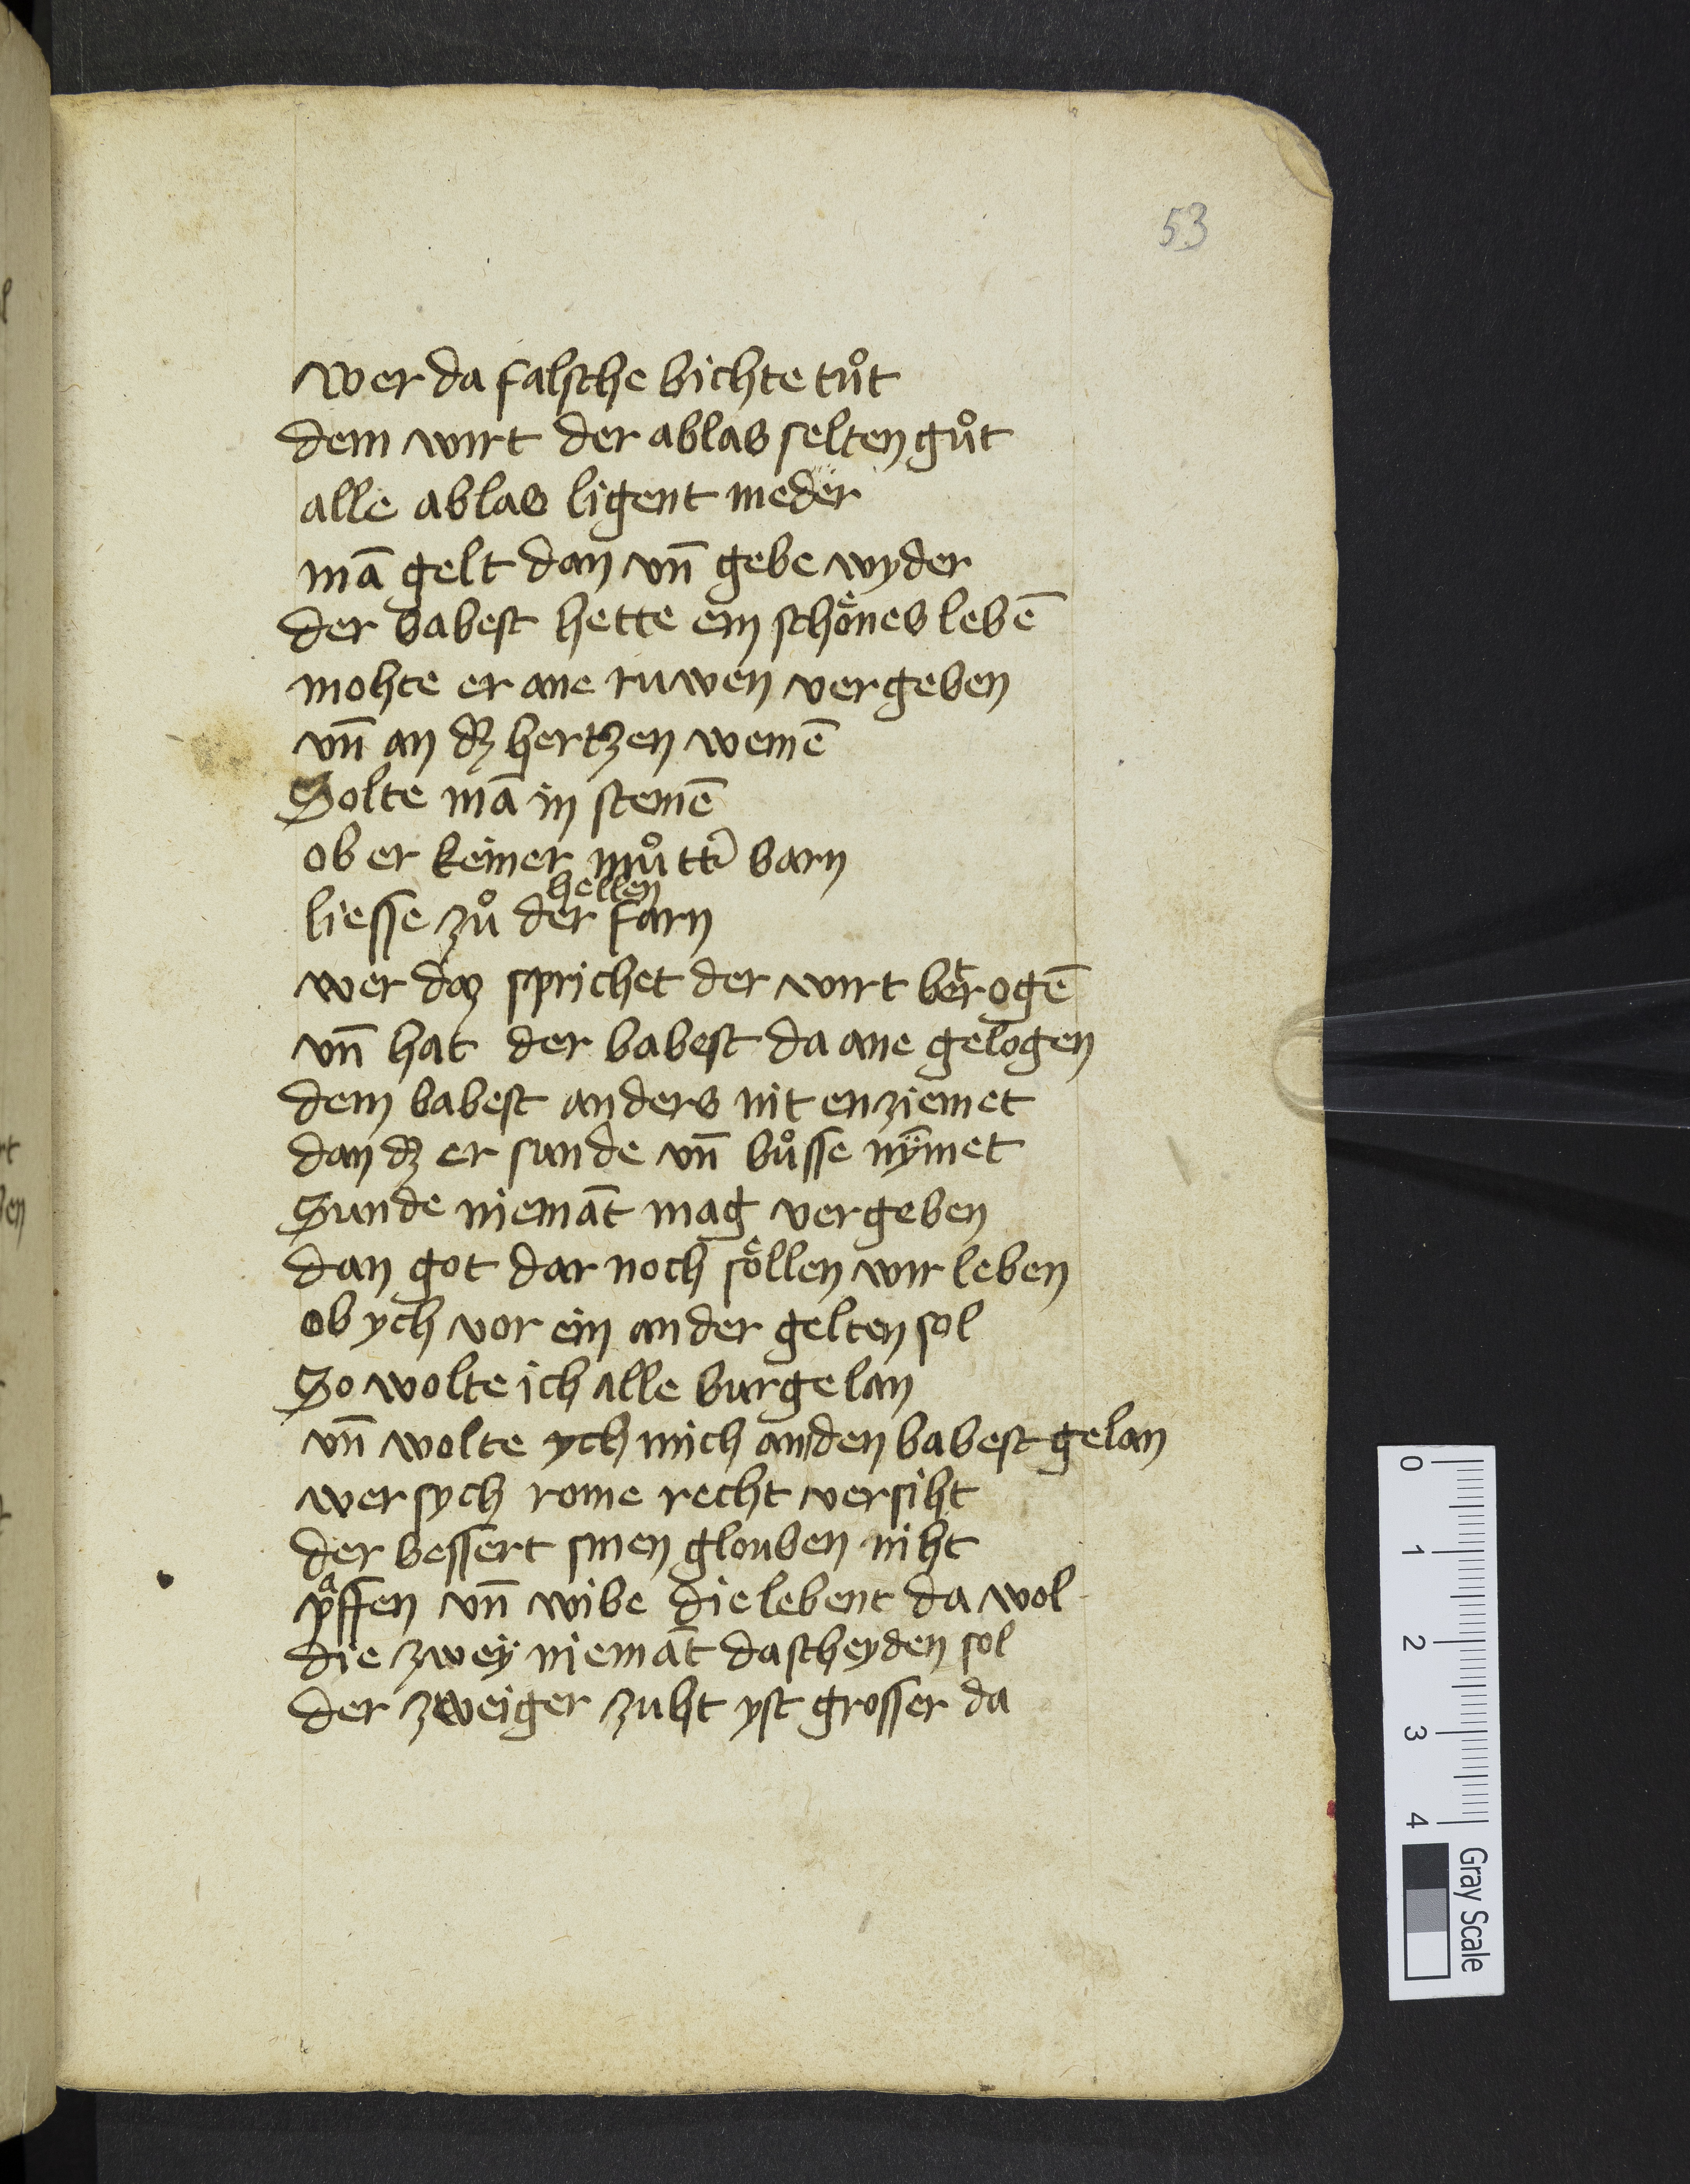 53
wer da falsche bichte tuͦt
dem wirt der ablas selten guͦt
alle ablas ligent nieder
mā gelt dan vn̄ gebe wyder
der babest hette ein schoͤnes lebē
mohte er ane ruwen vergeben
vn̄ an dꝫ hertzen weinē
Solte mā in steinē
ob er keiner muͦtt͛ barn
hellen
liesse zuͦ der farn
wer daz sprichet der wirt betrogē
vn̄ hat der babest da ane gelogen
dem babest anders nit enziemet
dan dꝫ er sunde vn̄ buͦsse nÿmet
Sunde niemāt mag vergeben
dan got dar noch soͤllen wir leben
ob ych vor ein ander gelten sol
So wolte ich alle burge lan
vn̄ wolte ych mich an den babest gelan
wer sych rome recht versiht
der bessert sinen glouben niht
pᵃffen vn̄ wibe die lebent da wol
die zweÿ niemāt da scheyden sol
der zweiger zuht yst grosser da
0
1
2
3
4
Gray Scale